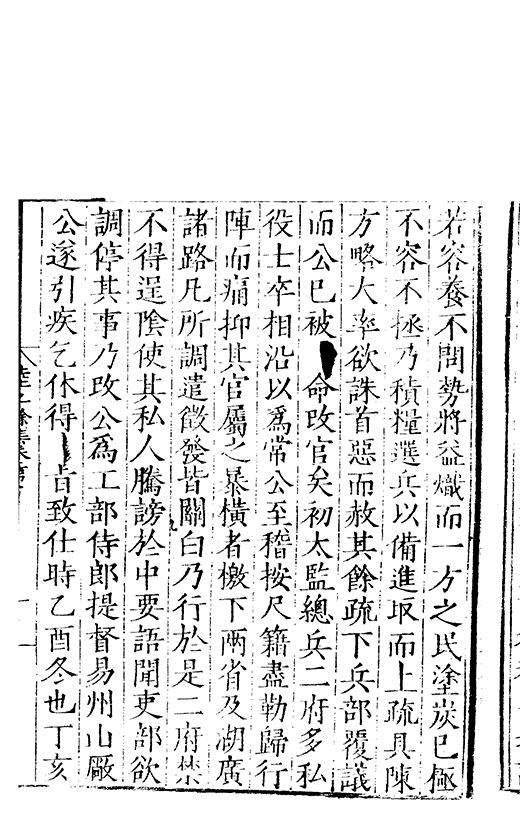 若容養不問勢將益熾而一方之民塗炭已極
不容不拯乃積糧選兵以備進取而上疏具陳
方略大率欲誅首惡而赦其餘疏下兵部覆議
而公已被 命改官矣初太監總兵二府多私
役士卒相沿以為常公至稽按尺籍盡勒歸行
陣而痛抑其官屬之暴橫者檄下兩省及湖廣
諸路凡所調遣徵發皆關白乃行於是二府禁
不得逞陰使其私人騰謗於中要語聞吏部欲
調停其事乃改公為工部侍郎提督易州山廠
公遂引疾乞休得 旨致仕時乙酉冬也丁亥